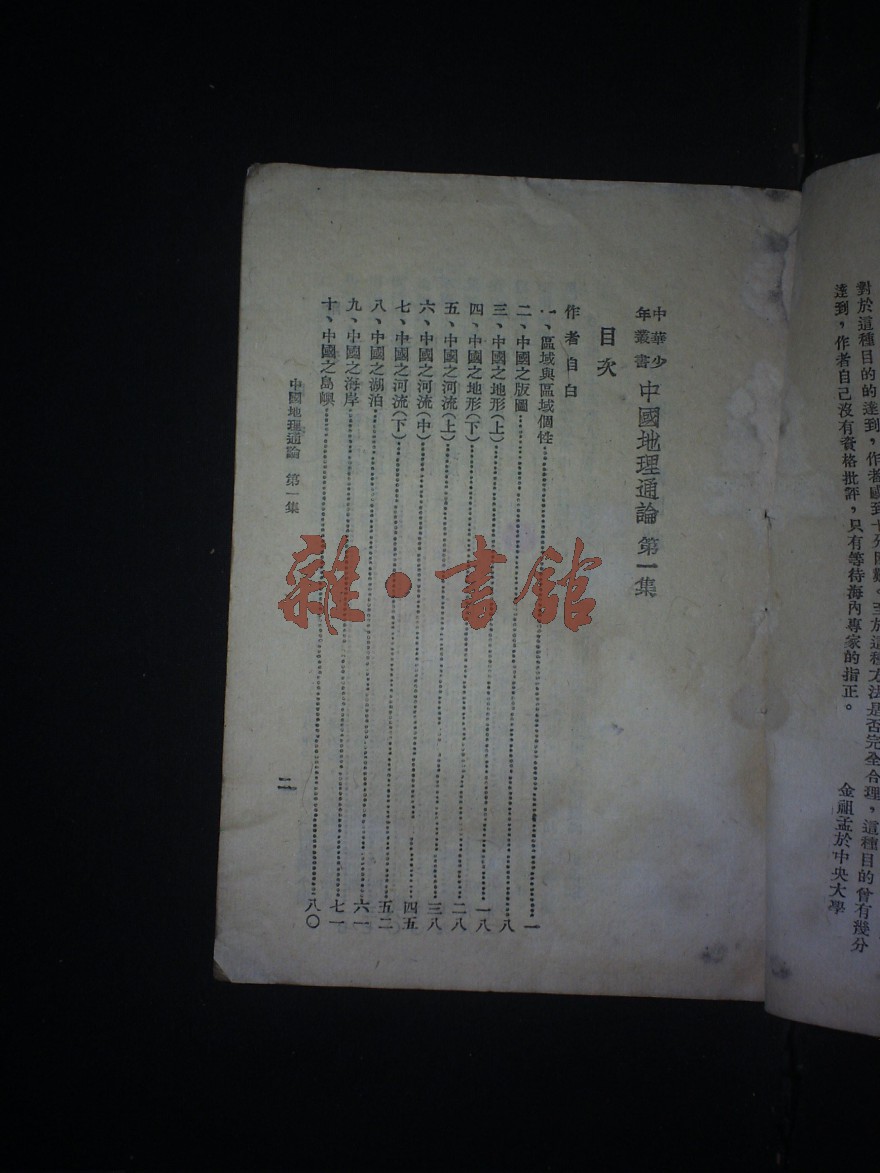 對於這種目的的達到，作者感到十分困難。至於這種方法是否完全合理，這種目的曾有幾分
達到，作者自己沒有資格批評，只有等待海內專家的指正。
金祖孟於中央大學
中華少
年叢書
中國地理通論 第一集
目次
作者自白
一、區域與區域個性……一
二、中國之版圖……八
三、中國之地形(上)……一八
四、中國之地形(下)……二八
五、中國之河流(上)……三八
六、中國之河流(中)……四五
七、中國之河流(下)……五二
八、中國之湖泊……六一
九、中國之海岸……七一
十、中國之島嶼……八〇
中國地理通論 第一集
二
雜·書館